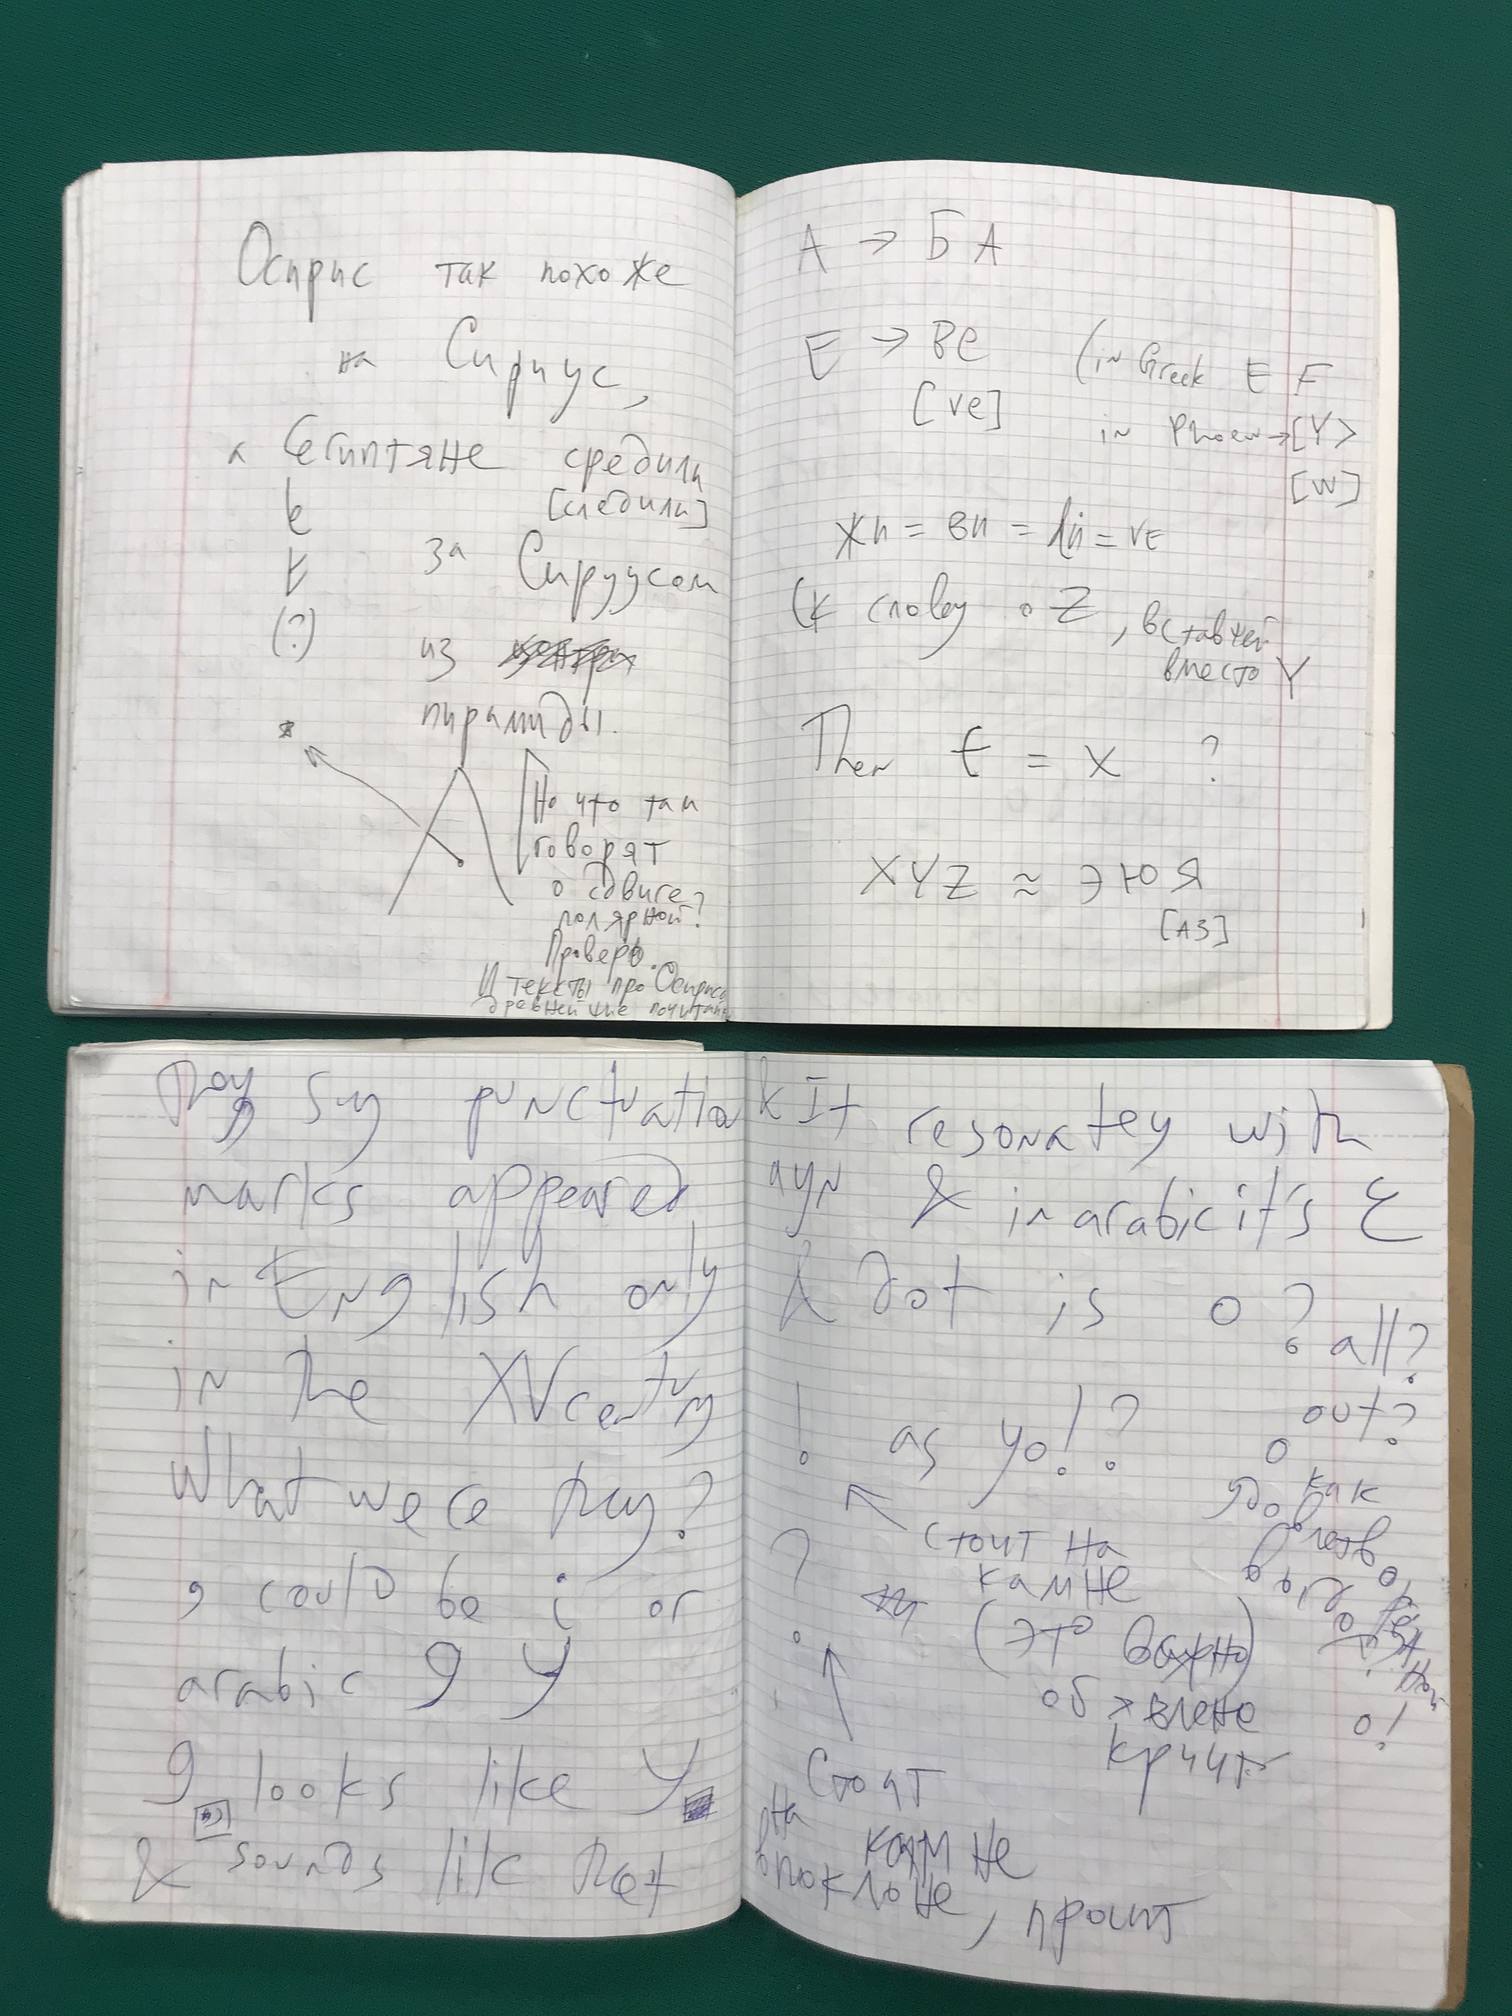 Осирис так похоже
на Сириус,
а Египтяне средили
[следили]
за Сируусом
из
пирамиды.
(?)
Но что там
говорят
о сдвиге
полярной?
Проверь.
И тексты про Осириса
древнейшие почитай
A → БА
E → ВЕ (in Greek E F
[ve] in Phoen → [Y>
[W]
жи = ви = = VE
(к слову о Z, вставшей
вместо Y
Then t = X ?
XYZ ≈ ЭЮЯ
[АЗ]
They say punctuation
marks appeared
in English only
in the XV century
What were they?
9 could be i or
arabic 9 y
9 looks like y
& sounds lik that
It resonatey with
ayn & in arabic it's ع
& dot is o ?
all?
! as yo!? out?
стоит на
камне
(это важно)
объявлене
кричит
o!
?
Стоит
на камне
в поклоне, проит